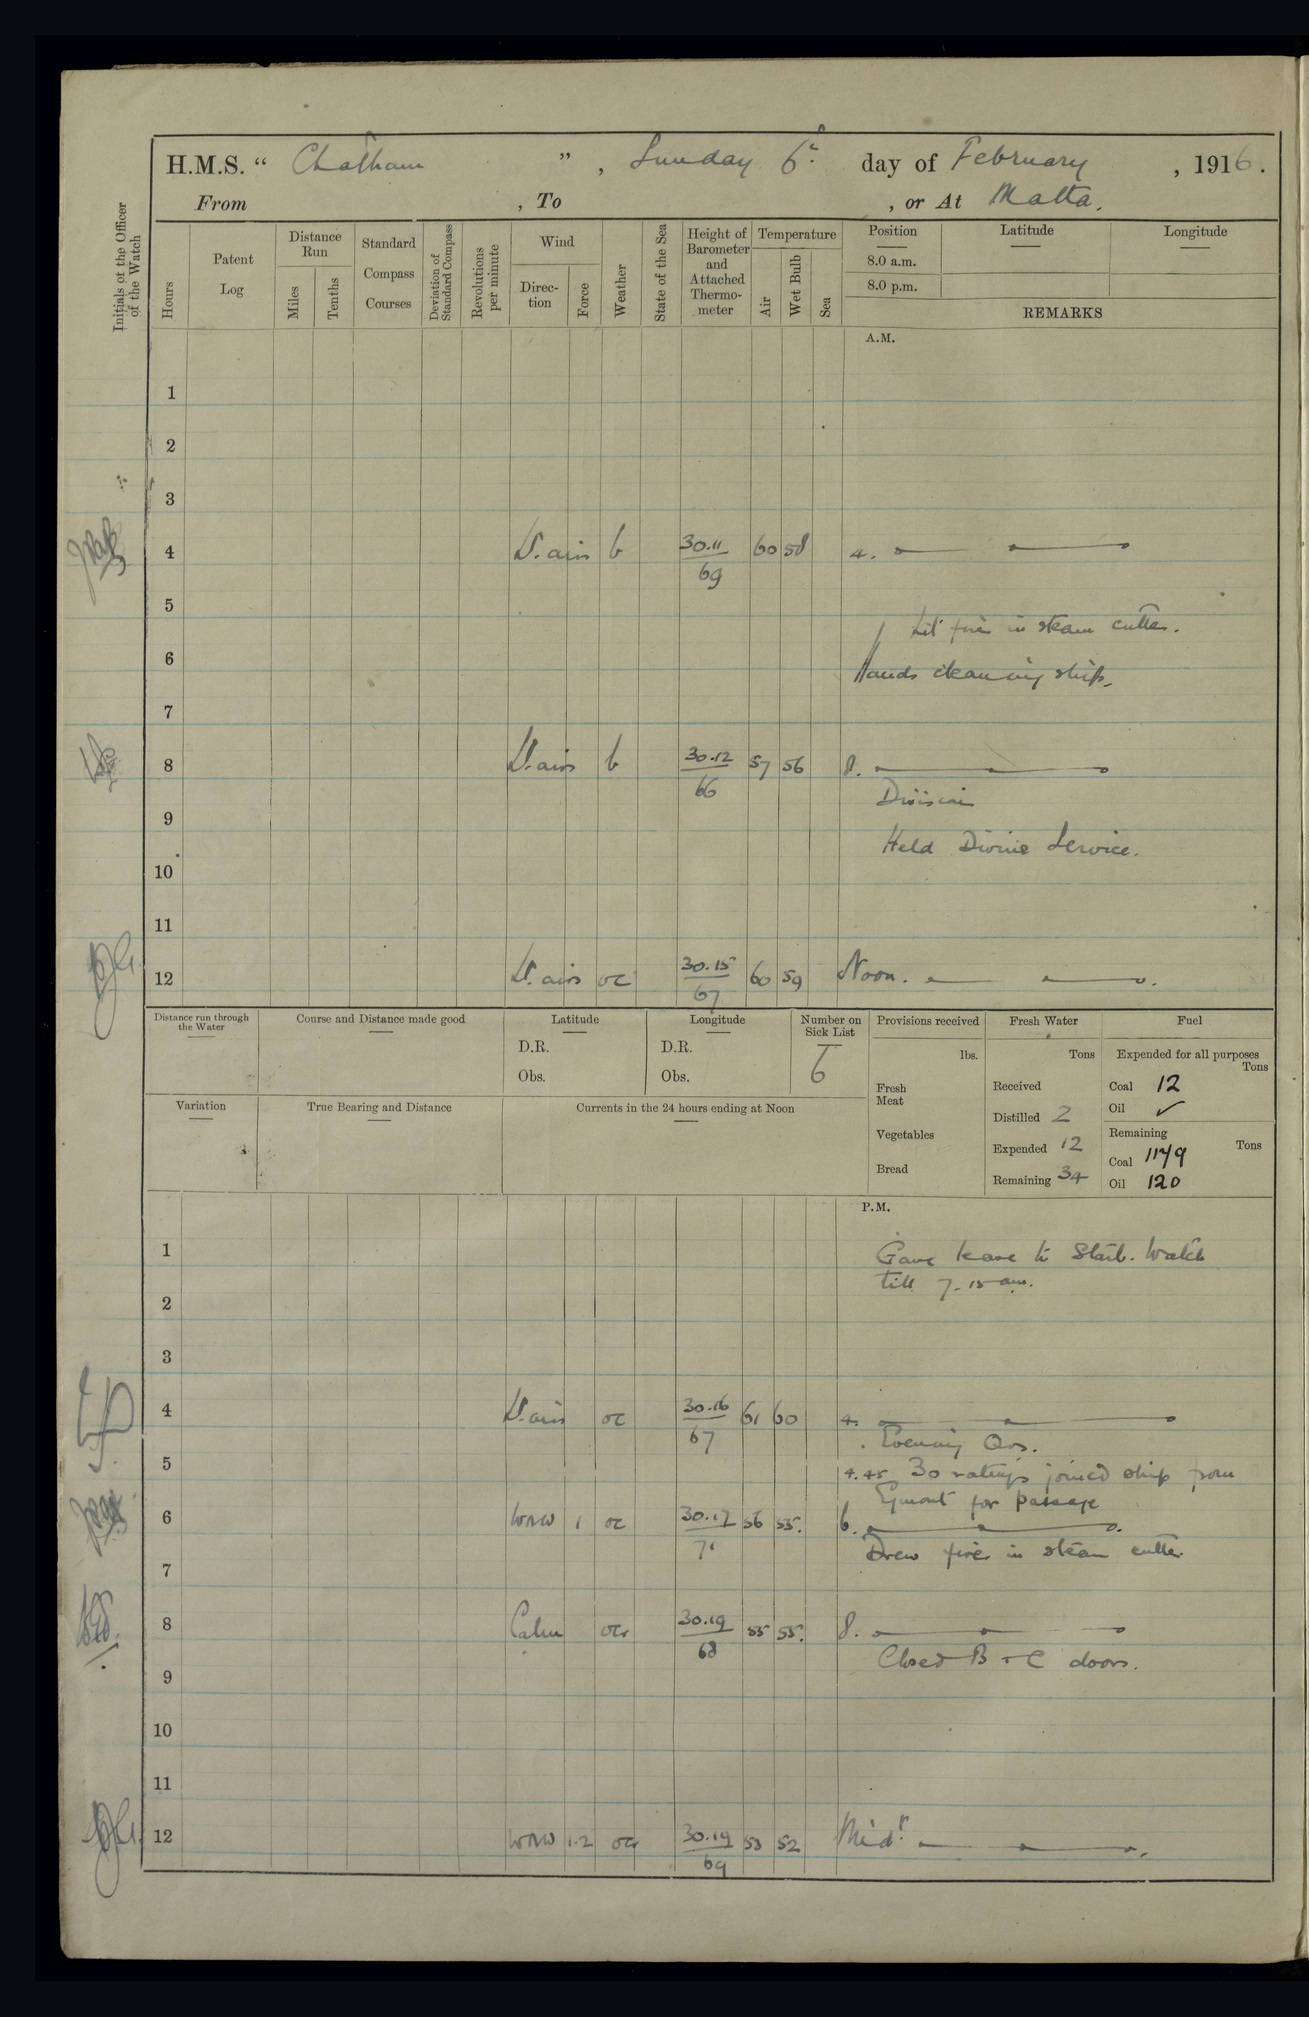 H.M.S. “ Chatham ” , Sunday 6th day of February , 1916.
From , To , or At Malta.
Initials of the Officer of the Watch
Hours
Patent Log
Distance Run
Miles
Tenths
Standard Compass Courses
Deviation of Standard Compass
Revolutions per minute
Wind
Direc-tion
Force
Weather
State of the Sea
Height of Barometer and Attached Thermo-meter
Temperature
Air
Wet Bulb
Sea
Position
8.0 a.m.
8.0 p.m.
Latitude
Longitude
REMARKS
A.M.
1
2
3
4 Lt. airs b 30.11/69 60 58 4.
5
Lit fires in steam cutter.
6
Hands cleaning ship.
7
8 Lt. airs b 30.12/66 57 56 8.
Division
9
Held Divine Service.
10
11
12 Lt. airs oc 30.15/67 60 59 Noon.
Distance run through the Water
Course and Distance made good
Latitude
D.R.
Obs.
Longitude
D.R.
Obs.
Number on Sick List
6
Provisions received
lbs.
Fresh Meat
Vegetables
Bread
Fresh Water
Tons
Received
Distilled 2
Expended 12
Remaining 34
Fuel
Expended for all purposes
Tons
Coal 12
Oil ✓
Remaining
Tons
Coal 1179
Oil 120
Variation
True Bearing and Distance
Currents in the 24 hours ending at Noon
P.M.
1
Gave leave to Starb. Watch
till 7.15 am.
2
3
4 Lt. airs oc 30.16/67 61 60 4.
Evening Qrs.
5
4.45 30 ratings joined ship from
Egmont for passage
6 WNW 1 oc 30.17/71 56 55. 6.
Drew fires in steam cutter
7
8 Calm ocr 30.19/68 55 55. 8.
Closed B + C doors.
9
10
11
12 WNW 1.2 ocr 30.19/69 53 52 Midt.